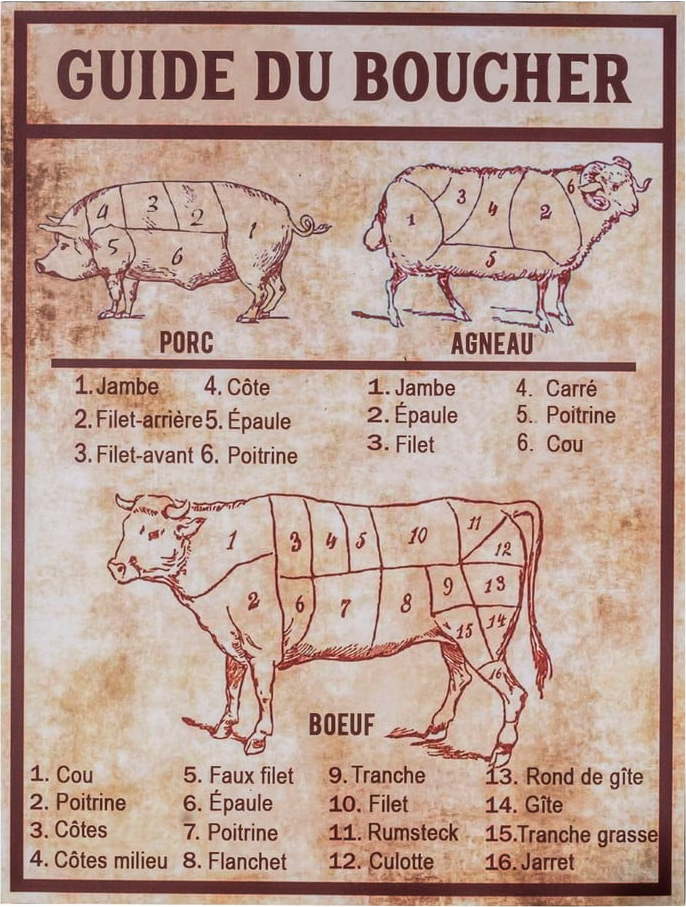 GUIDE DU BOUCHER
4 3 2 1 5 6
1 3 4 2 6 5
PORC AGNEAU
1. Jambe 4. Côte 1. Jambe 4. Carré
2. Filet-arrière 5. Épaule 2. Épaule 5. Poitrine
3. Filet-avant 6. Poitrine 3. Filet 6. Cou
1 3 4 5 10 11 12
2 6 7 8 9 13 14 15 16
BOEUF
1. Cou 5. Faux filet 9. Tranche 13. Rond de gîte
2. Poitrine 6. Épaule 10. Filet 14. Gîte
3. Côtes 7. Poitrine 11. Rumsteck 15. Tranche grasse
4. Côtes milieu 8. Flanchet 12. Culotte 16. Jarret